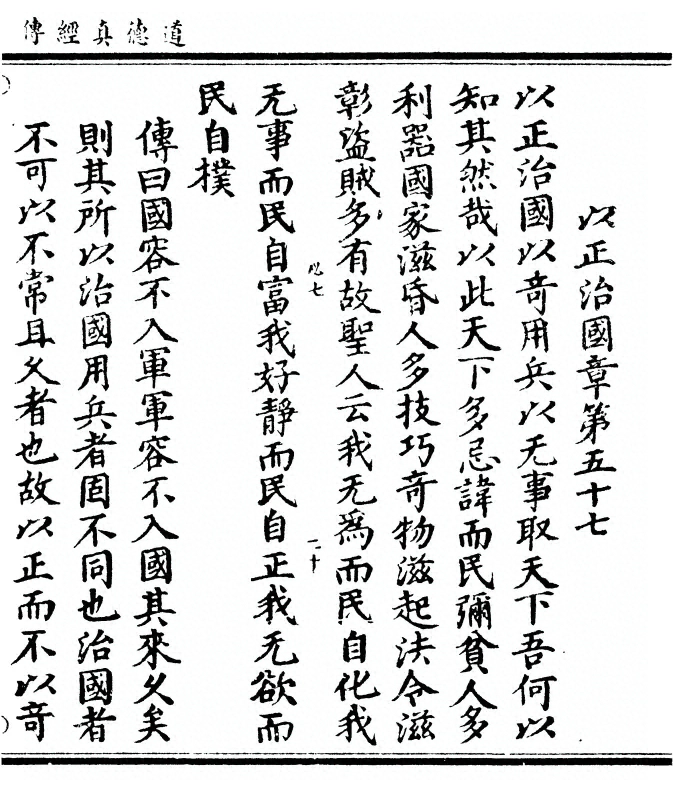 道德真經傳
以正治國章第五十七
以正治國以奇用兵以无事取天下吾何以
知其然哉以此天下多忌諱而民彌貧人多
利器國家滋昏人多技巧奇物滋起法令滋
彰盜賊多有故聖人云我无爲而民自化我
必七
二十
无事而民自富我好靜而民自正我无欲而
民自撲
傳曰國容不入軍軍容不入國其來久矣
則其所以治國用兵者固不同也治國者
不可以不常且久者也故以正而不以奇